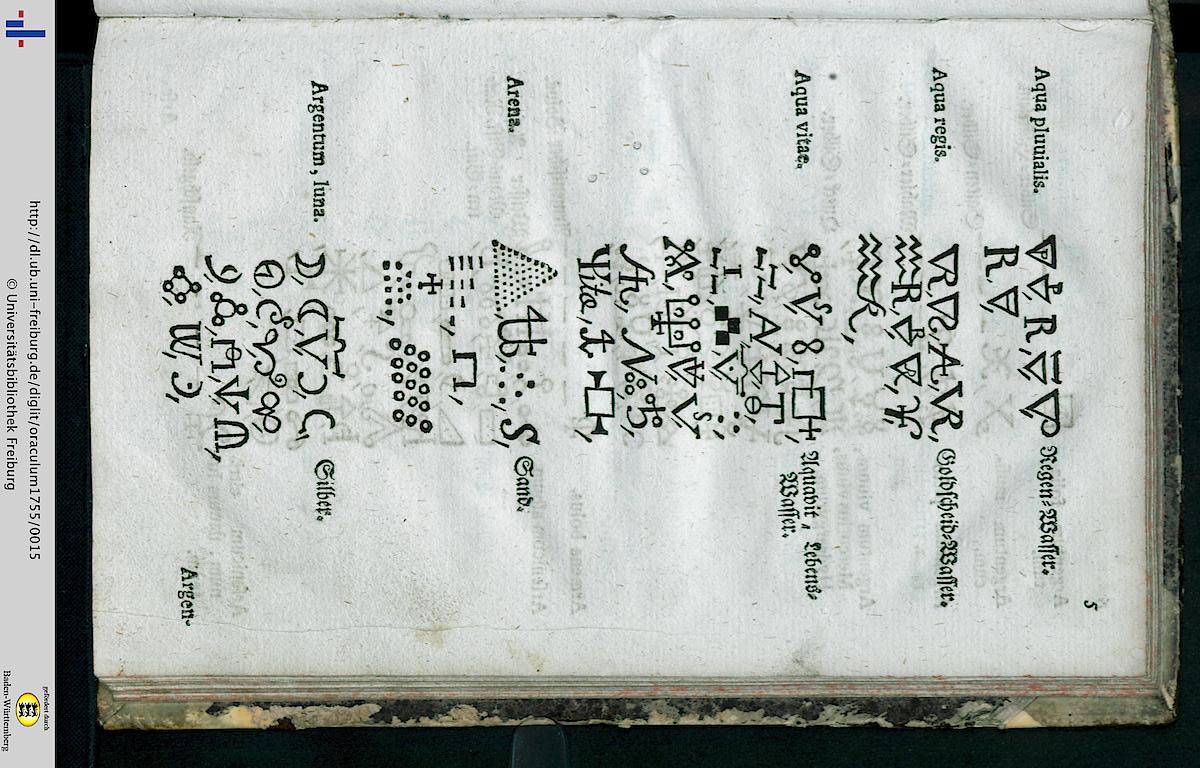 5
Aqua pluuialis. Regen-Wasser.
Aqua regis. Goldscheid-Wasser.
Aqua vitae. Aquavit, Lebens-
Wasser.
Arena. Sand.
Argentum, luna. Silber.
Argen-
http://dl.ub.uni-freiburg.de/diglit/oraculum1755/0015
© Universitätsbibliothek Freiburg
gefördert durch
Baden-Württemberg